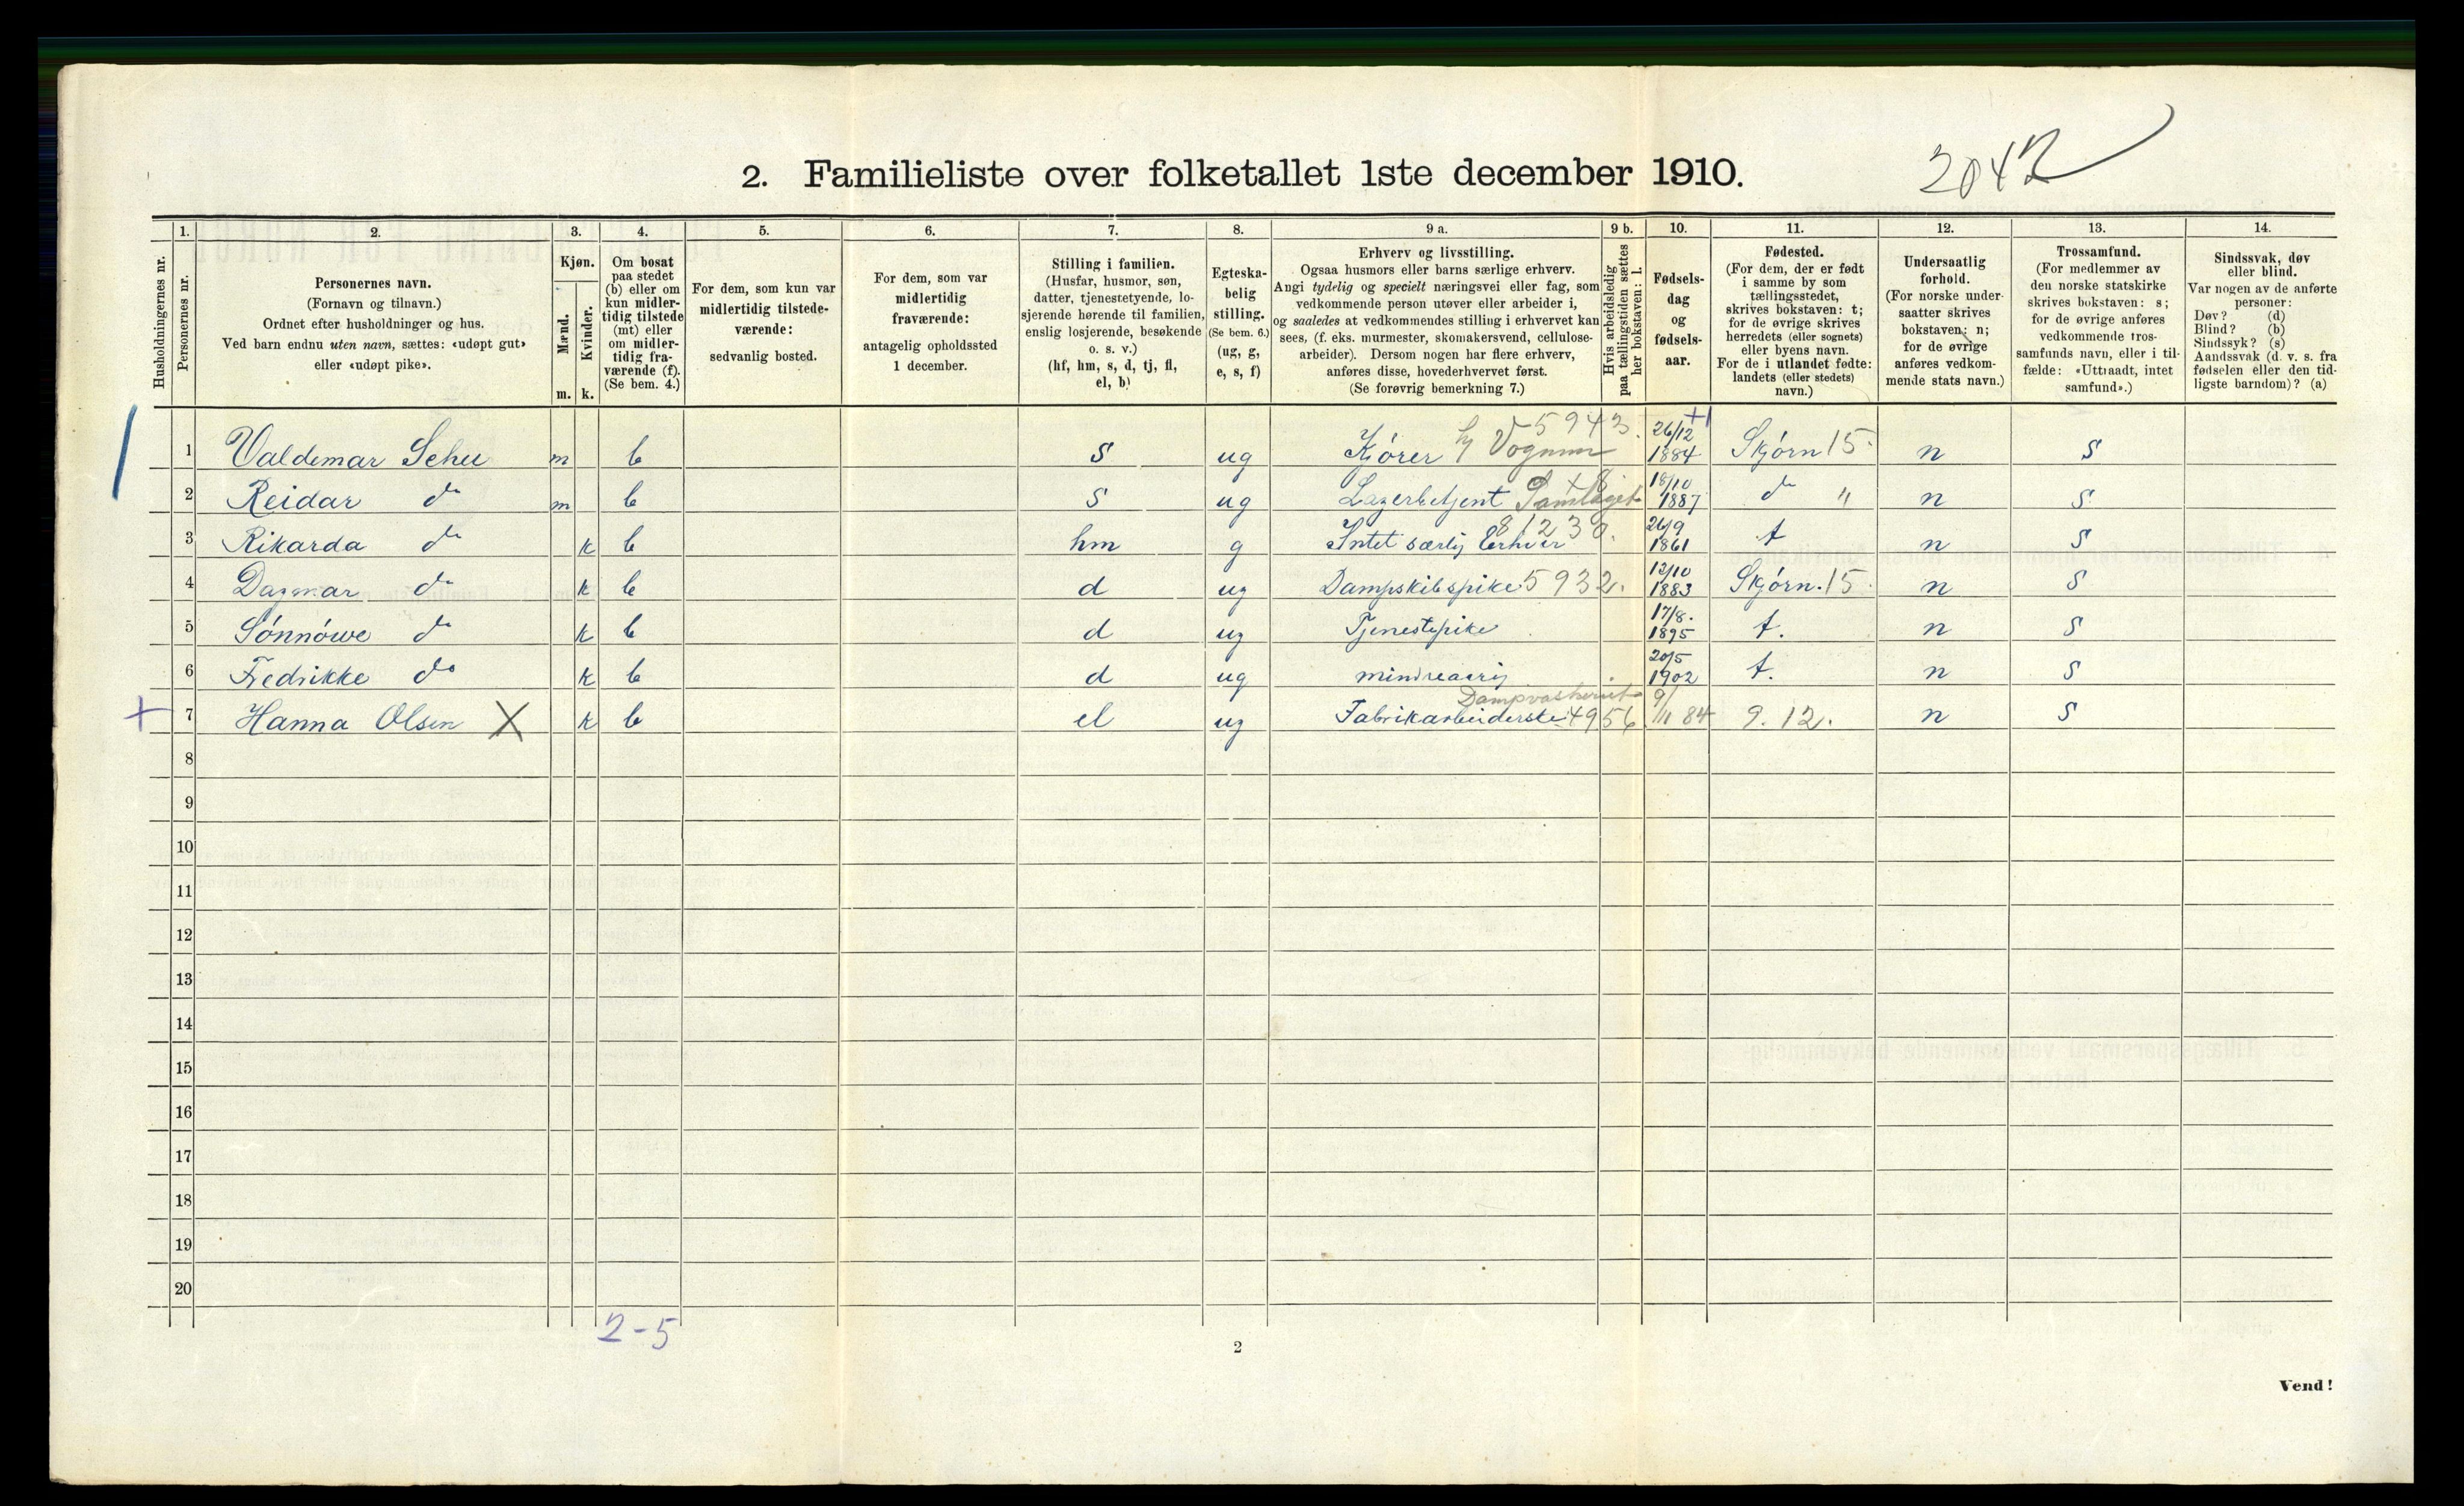 2. Familieliste over folketallet 1ste december 1910.
2042
Husholdningernes nr.
1. Personernes nr.
2. Personernes navn.
(Fornavn og tilnavn.)
Ordnet efter husholdninger og hus.
Ved barn endnu uten navn, sættes: «udøpt gut»
eller «udøpt pike».
3. Kjøn.
Mænd. m.
Kvinder. k.
4. Om bosat
paa stedet
(b) eller om
kun midler-
tidig tilstede
(mt) eller
om midler-
tidig fra-
værende (f).
(Se bem. 4.)
5. For dem, som kun var
midlertidig tilstede-
værende:
sedvanlig bosted.
6. For dem, som var
midlertidig
fraværende:
antagelig opholdssted
1 december.
7. Stilling i familien.
(Husfar, husmor, søn,
datter, tjenestetyende, lo-
sjerende hørende til familien,
enslig losjerende, besøkende
o. s. v.)
(hf, hm, s, d, tj, fl,
el, b)
8. Egteska-
belig
stilling.
(Se bem. 6.)
(ug, g,
e, s, f)
9 a. Erhverv og livsstilling.
Ogsaa husmors eller barns særlige erhverv.
Angi tydelig og specielt næringsvei eller fag, som
vedkommende person utøver eller arbeider i,
og saaledes at vedkommendes stilling i erhvervet kan
sees, (f. eks. murmester, skomakersvend, cellulose-
arbeider). Dersom nogen har flere erhverv,
anføres disse, hovederhvervet først.
(Se forøvrig bemerkning 7.)
9 b. Hvis arbeidsledig
paa tællingstiden sættes
her bokstaven: l.
10. Fødsels-
dag
og
fødsels-
aar.
11. Fødested.
(For dem, der er født
i samme by som
tællingsstedet,
skrives bokstaven: t;
for de øvrige skrives
herredets (eller sognets)
eller byens navn.
For de i utlandet fødte:
landets (eller stedets)
navn.)
12. Undersaatlig
forhold.
(For norske under-
saatter skrives
bokstaven: n;
for de øvrige
anføres vedkom-
mende stats navn.)
13. Trossamfund.
(For medlemmer av
den norske statskirke
skrives bokstaven: s;
for de øvrige anføres
vedkommende tros-
samfunds navn, eller i til-
fælde: «Uttraadt, intet
samfund».)
14. Sindssvak, døv
eller blind.
Var nogen av de anførte
personer:
Døv? (d)
Blind? (b)
Sindssyk? (s)
Aandssvak (d. v. s. fra
fødselen eller den tid-
ligste barndom)? (a)
1 Valdemar Schu m b s ug Kjører 5943. 26/12 1884 Skjørn 15. n S
2 Reidar do m b s ug Lagerbetjent Samlaget 18/10 1887 do " n S
3 Rikarda do k b hm g Intet særlig Erhver 81230. 26/9 1861 t n S
4 Dagmar do k b d ug Dampskibspike 5932. 12/10 1883 Skjørn. 15 n S
5 Sønnøwe do k b d ug Tjenestepike 17/8. 1895 t. n S
6 Fredrikke do k b d ug mindreaarig 20/5 1902 t. n S
+ 7 Hanna Olsen X k b el ug Fabrikarbeiderske Dampvaskeriet 4956 9/11 84 9. 12. n S
8
9
10
11
12
13
14
15
16
17
18
19
20
2-5
2
Vend!